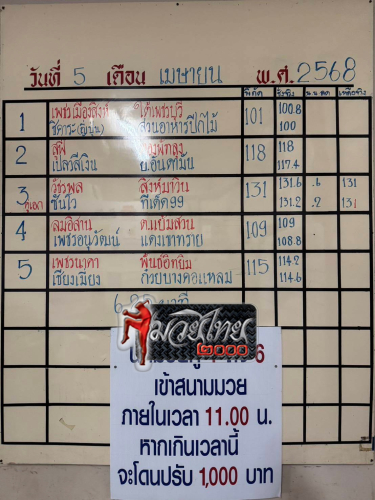 วันที่ 5 เดือน เมษายน พ.ศ. 2568
พิกัด ชั่งจริง น.น.ลด เหลือจริง
1 เพชรเมืองสิงห์ ใต้เพชรบุรี 101 100.8
ชิคาระ(ญี่ปุ่น) สวนอาหารปีกไม้ 100
2 สุฟี 118 118
เปลวสีเงิน อ.อันดามัน 117.4
3 วัชรพล สิงห์มาวิน 131 131.6 .6 131
คู่เอก ซันโว พีเค้ด99 131.2 .2 131
4 ลมอิสาน ต.แย้มสวน 109 109
เพชรอนุวัฒน์ แดงเขาทราย 108.8
5 เพชรนาคา พันธ์อิทยิม 115 114.2
เชียงเมียง ก๋วยบางคอแหลม 114.6
มวยไทย
๒๐๐๐
6
เข้าสนามมวย
ภายในเวลา 11.00 น.
หากเกินเวลานี้
จะโดนปรับ 1,000 บาท